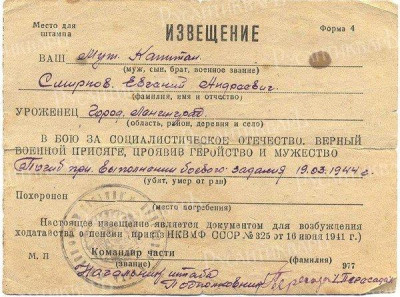 Место для штампа
ИЗВЕЩЕНИЕ
Форма 4
ВАШ Муж Капитан
(муж, сын, брат, военное звание)
Смирнов, Евгений Андреевич
(фамилия, имя и отчество)
УРОЖЕНЕЦ Город Ленинград
(область, район, деревня и село)
В БОЮ ЗА СОЦИАЛИСТИЧЕСКОЕ ОТЕЧЕСТВО, ВЕРНЫЙ
ВОЕННОЙ ПРИСЯГЕ, ПРОЯВИВ ГЕРОЙСТВО И МУЖЕСТВО
Погиб при выполнении боевого задания 19.03.1944 г.
(убит, умер от ран)
Похоронен
(место погребения)
Настоящее извещение является документом для возбуждения
ходатайства о пенсии приказ НКВМФ СССР № 325 от 16 июня 1941 г.)
М. П Командир части
(звание) (фамилия) 977
Начальник штаба
Подполковник